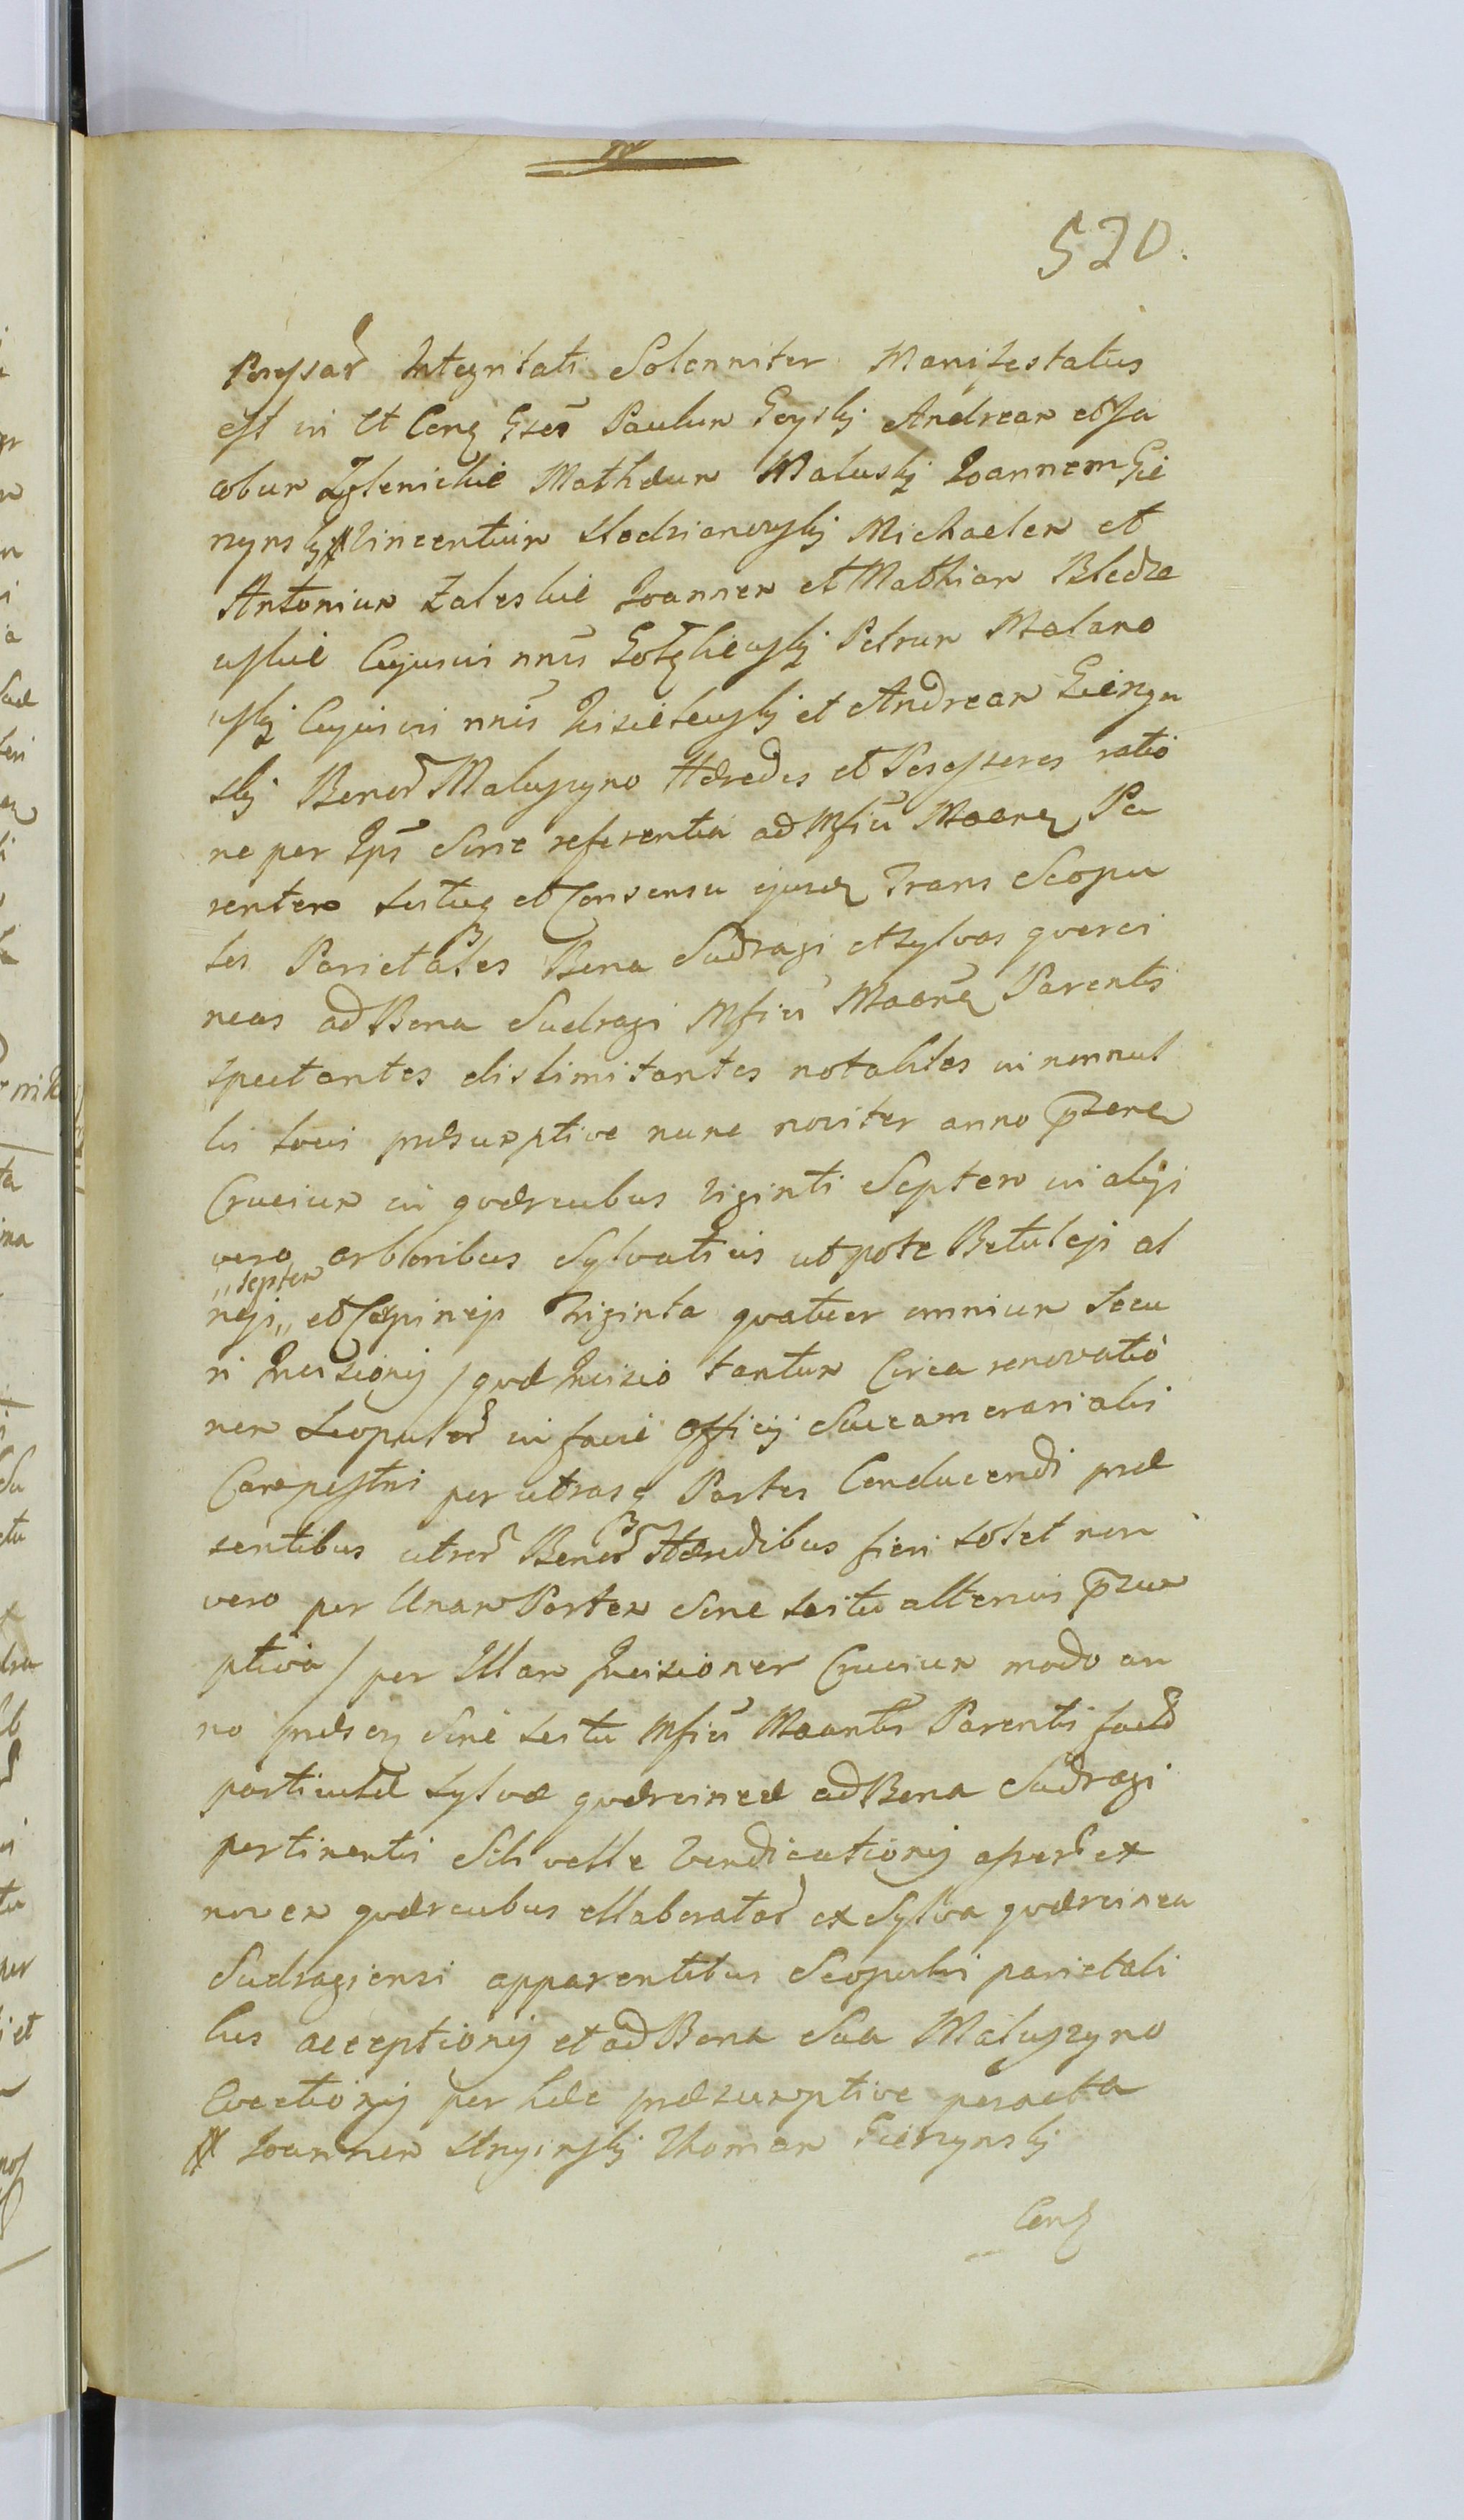 520.
Possar Integritati Solenniter Manifestatus
est in et Conq Gsos Paulum Goysky Andream et Ja
cobum Zglenickie Mathæum Malusky Joannem Gie
nynsky # Vincentium Modzianowsky Michaelem et
Antonium Zaleskie Joannem et Mathiam Bledze
wskie Cujusvis nnis Petrum Malano
wsky Cujusvis nnis et Andream
sky Bonor Maluszyno Hæredes et Possessores ratio
ne per Ips Sine referentia ad Mficu Maenq Pa
rentem scituq et Consensu ejusdq Trans Scopu
los Parietales Bona Sudragi et sylvas querci
neas ad Bona Sudragi Mfici Maenq Parentis
spectantes dislimitantes notabiles in nonnul
lis locis præsumptive nunc noviter anno præsene
Crucium in quercubus viginti Septem in alijs
vero arboribus Sylvaticis utpote Betulejs al
nejs „ septem et Cæpinejs Triginta quatuor omnium secu
ri Incisionis / quæ Incisio tantum Circa renovatio
nem Scopulor in facie Officij Succamerarialis
Campestris per utrasq Partes Conducendi præ
sentibus utror Bonor Hæredibus fieri solet non
vero per Unam Partem Sine scitu alterius præsum
ptiva / per Illam Incisionem Crucium modo an
no præseq Sine scitu Mfici Maantis Parentis fact
particulæ sylvæ quærcineæ ad Bona Sudragi
pertinentis Sibi velle Vendicationis asser ex
novem quærcubus ellaborator ex Sylva quærcinea
Sudragiensi apparentibus Scopulis parietali
bus acceptionis et ad Bona Sua Maluszyno
Evectionis per hæc præsumptive peracta
# Joannem Thomam Gienynsky
Conq